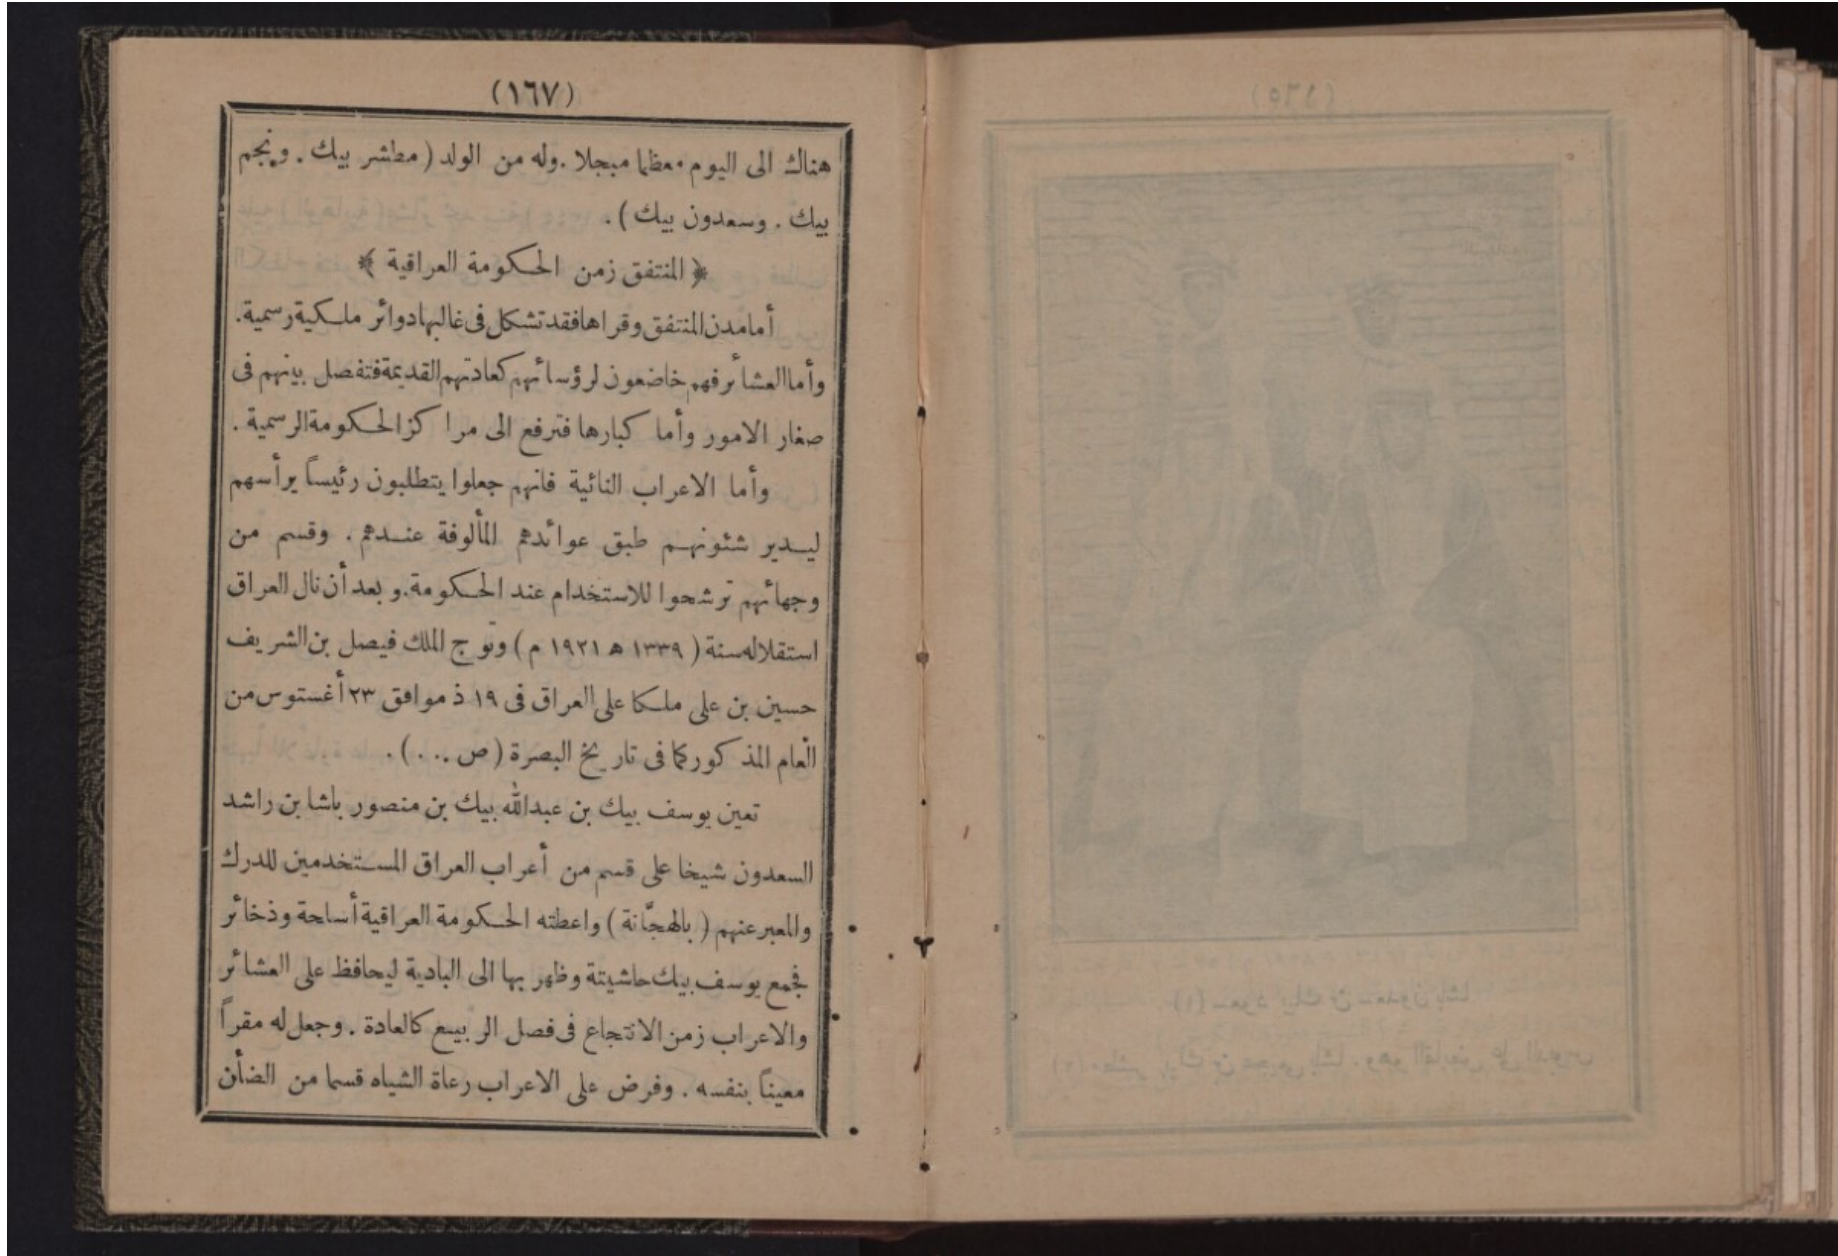 (١٦٧)
هناك الى اليوم معظما مبجلا . وله من الولد ( مطشر بيك . ونجم
بيك . وسعدون بيك ) .
﴿ المنتفق زمن الحكومة العراقية ﴾
أما مدن المنتفق وقراها فقد تشكل فى غالبها دوائر ملكية رسمية .
وأما العشائر فهم خاضعون لرؤسائهم كعادتهم القديمة فتفصل بينهم فى
صغار الامور وأما كبارها فترفع الى مراكز الحكومة الرسمية .
وأما الاعراب النائية فانهم جعلوا يتطلبون رئيساً يرأسهم
ليدير شئونهم طبق عوائدهم المألوفة عندهم . وقسم من
وجهائهم ترشحوا للاستخدام عند الحكومة . وبعد أن نال العراق
استقلاله سنة ( ١٣٣٩ ه ١٩٢١ م ) وتوّج الملك فيصل بن الشريف
حسين بن على ملكا على العراق فى ١٩ ذ موافق ٢٣ أغستوس من
العام المذكور كما فى تاريخ البصرة ( ص ... ) .
تعين يوسف بيك بن عبدالله بيك بن منصور باشا بن راشد
السعدون شيخا على قسم من أعراب العراق المستخدمين للدرك
والمعبر عنهم ( بالهجّانة ) واعطته الحكومة العراقية أساحة وذخائر
فجمع يوسف بيك حاشيتة وظهر بها الى البادية ليحافظ على العشائر
والاعراب زمن الانتجاع فى فصل الربيع كالعادة . وجعل له مقراً
معيناً بنفسه . وفرض على الاعراب رعاة الشياه قسما من الضأن